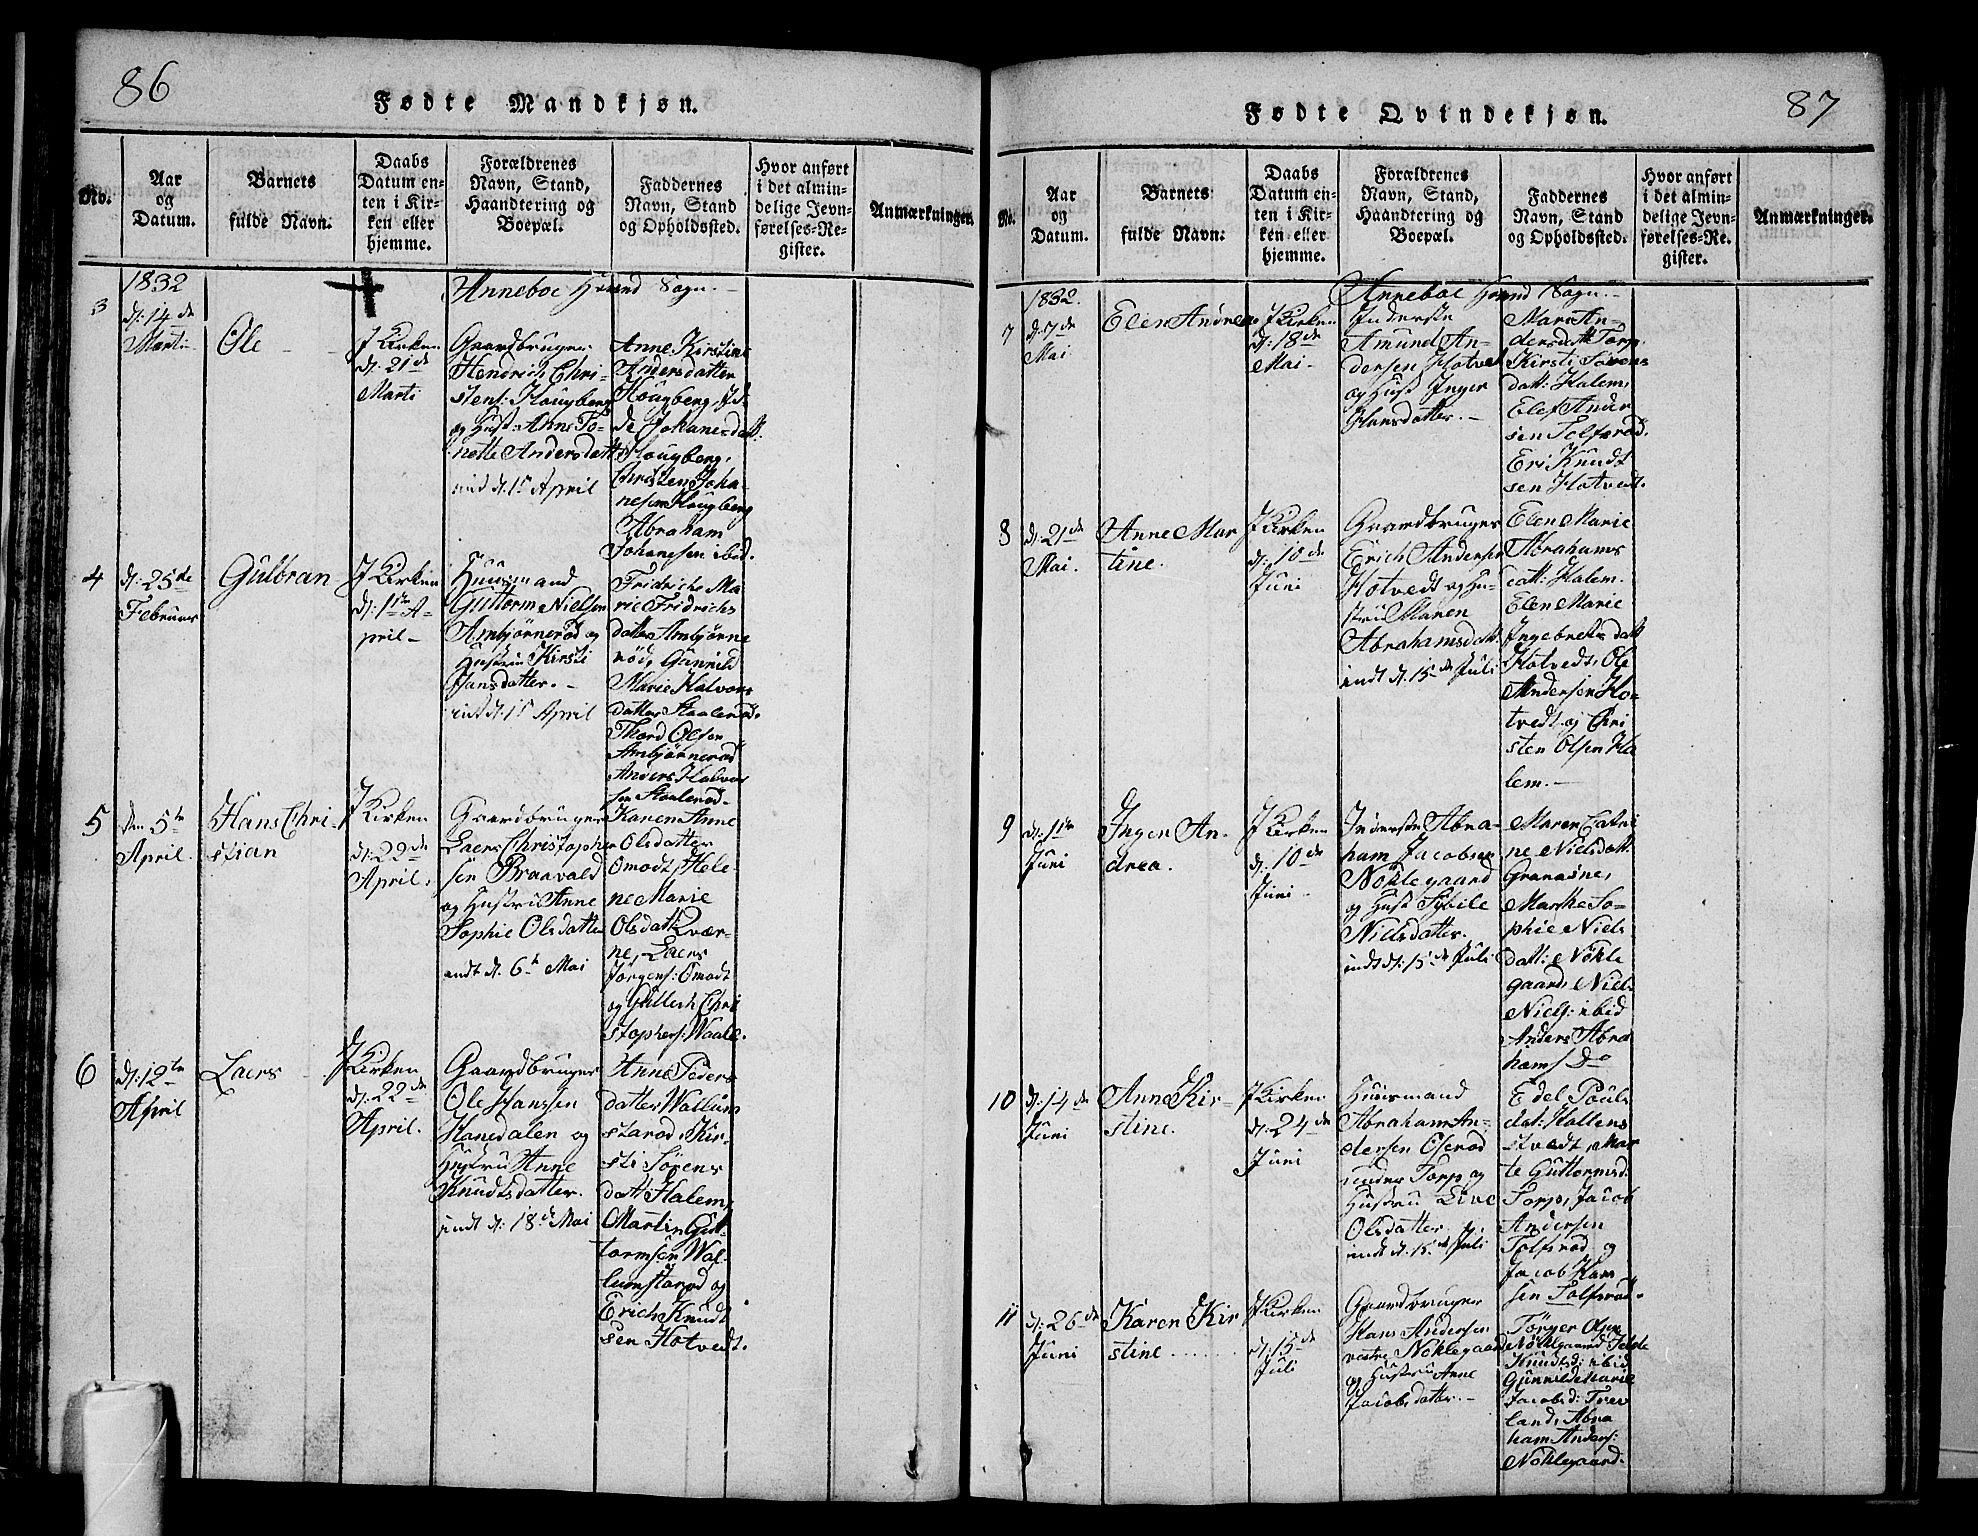 86
Fødte Mandkjøn.
No.
Aar
og
Datum.
Barnets
fulde Navn.
Daabs
Datum en-
ten i Kir-
ken eller
hjemme.
Forældrenes
Navn, Stand,
Haandtering og
Boepæl.
Faddernes
Navn, Stand
og Opholdssted.
Hvor anført
i det almin-
delige Jevn-
førelses-Re-
gister.
Anmærkninger.
Anneboe Sogn.
3
1832
d: 14de
Marti
Ole
I Kirken
d: 21de
Marti
Gaardbruger
Hendrich Chri-
stens: Hougberg
og Hust: Anne To-
nette Andersdatt:
indt d. 1st April
Anne Kirstine
Andersdatter
Hougberg,
Johanesdatt:
Hougberg,
Christen Joha-
nesen Hougberg
Abraham
Johanesen ibid.
4
d: 25de
Februar
Gulbran
I Kirken
d: 1ste A-
pril
Huusmand
Guttorm Nielsen
Ambjørnerød og
Hustrue Kirsti
Hansdatter.
indt d. 1st April
Fridriche Ma
rie Fridrichs
datter Ambjørne
rød, Gunnild
Marie Halvors
datter Staalerød.
Thord Olsen
Ambjørnerød
Anders Halvor
sen Staalerød.
5
den 5te
April.
Hans Chri-
stian
I Kirken
d: 22de
April.
Gaardbruger
Laers Christopher
sen Braavald
og Hustru Anne
Sophie Olsdatter
indt d. 6te Mai
Karen Anne
Olsdatter
Omodt, Hele
ne Marie
Olsdatt: Qvær-
ne, Laers
Jørgens: Omodt
og Gullich Chri
stophers: Waale.
6
d: 12te
April
Laers
I Kirken
d: 22de
April.
Gaardbruger
Ole Hanssen
Hanedalen og
Hustru Anne
Knudtsdatter.
indt d: 18de Mai
Anne Peders
datter Wallum
starød, Kir-
sti Sørens
datt Halem,
Martin Gut
tormsen Wal
lumstarød og
Erich Knudt
sen Hotvedt.
87
Fødte Qvindekjøn.
No.
Aar
og
Datum.
Barnets
fulde Navn.
Daabs
Datum en-
ten i Kir-
ken eller
hjemme.
Forældrenes
Navn, Stand,
Haandtering og
Boepæl.
Faddernes
Navn, Stand
og Opholdssted.
Hvor anført
i det almin-
delige Jevn-
førelses-Re-
gister.
Anmærkninger.
Anneboe Sogn.
7
1832.
d: 7de
Mai
Elen Andrea
I Kirken
d: 18de
Mai
Inderste
Amund An-
dersen Hotvedt
og Hust Inger
Hansdatter.
Mari An-
dersdatt Torp
Kirsti Sørens
datt: Halem,
Elef Ander
sen Tolfsrød,
Eri Knudt
sen Hotvedt.
8
d: 21de
Mai.
Anne Mar
tine.
I Kirken
d: 10de
Juni
Gaardbruger
Erich Andersen
Hotvedt og Hu-
stru Maren
Abrahamsdatt:
indt d. 15de Juli
Elen Marie
Abrahams
datt: Halem.
Elen Marie
Ingebretsdatt
Hotvedt, Ole
Andersen Ho-
tvedt og Chri
sten Olsen Ha
lem.
9
d: 1ste
Juni
Ingen An
drea.
I Kirken
d. 10de
Juni
Inderste Abra-
ham Jacobsen
Nøklegaard
og Hust Sybile
Nielsdatter.
indt d: 15de Juli
Maren Catri
ne Nielsdatt:
Granaane,
Marthe So-
phie Niels
datt: Nøkle
gaard, Niels
Niels: ibid
Anders Abra
hams Do
10
d: 14de
Juni
Anne Kir-
stine.
I Kirken
d: 24de
Juni
Huusmand
Abraham An-
dersen Oserød
under Torp og
Hustru Live
Olsdatter.
indt d. 15de Juli
Edel Pouls
dat: Hallens
tvedt, Mar
te Guttormsd:
Torp, Jacob
Andersen
Tolfsrød og
Jacob Han
sen Tolfsrød.
11
d: 26de
Juni
Karen Kir
stine
I Kirken
d: 15de
Juli
Gaardbruger
Hans Andersen
vestre Nøklegaard
og Hustru Anne
Jacobsdatter.
Tørger Olsen
Nøklegaard
Knudtsd: ibid
Gunnild Marie
Jacobsd: Trev
land, Abra
ham Anders:
Nøklegaard.